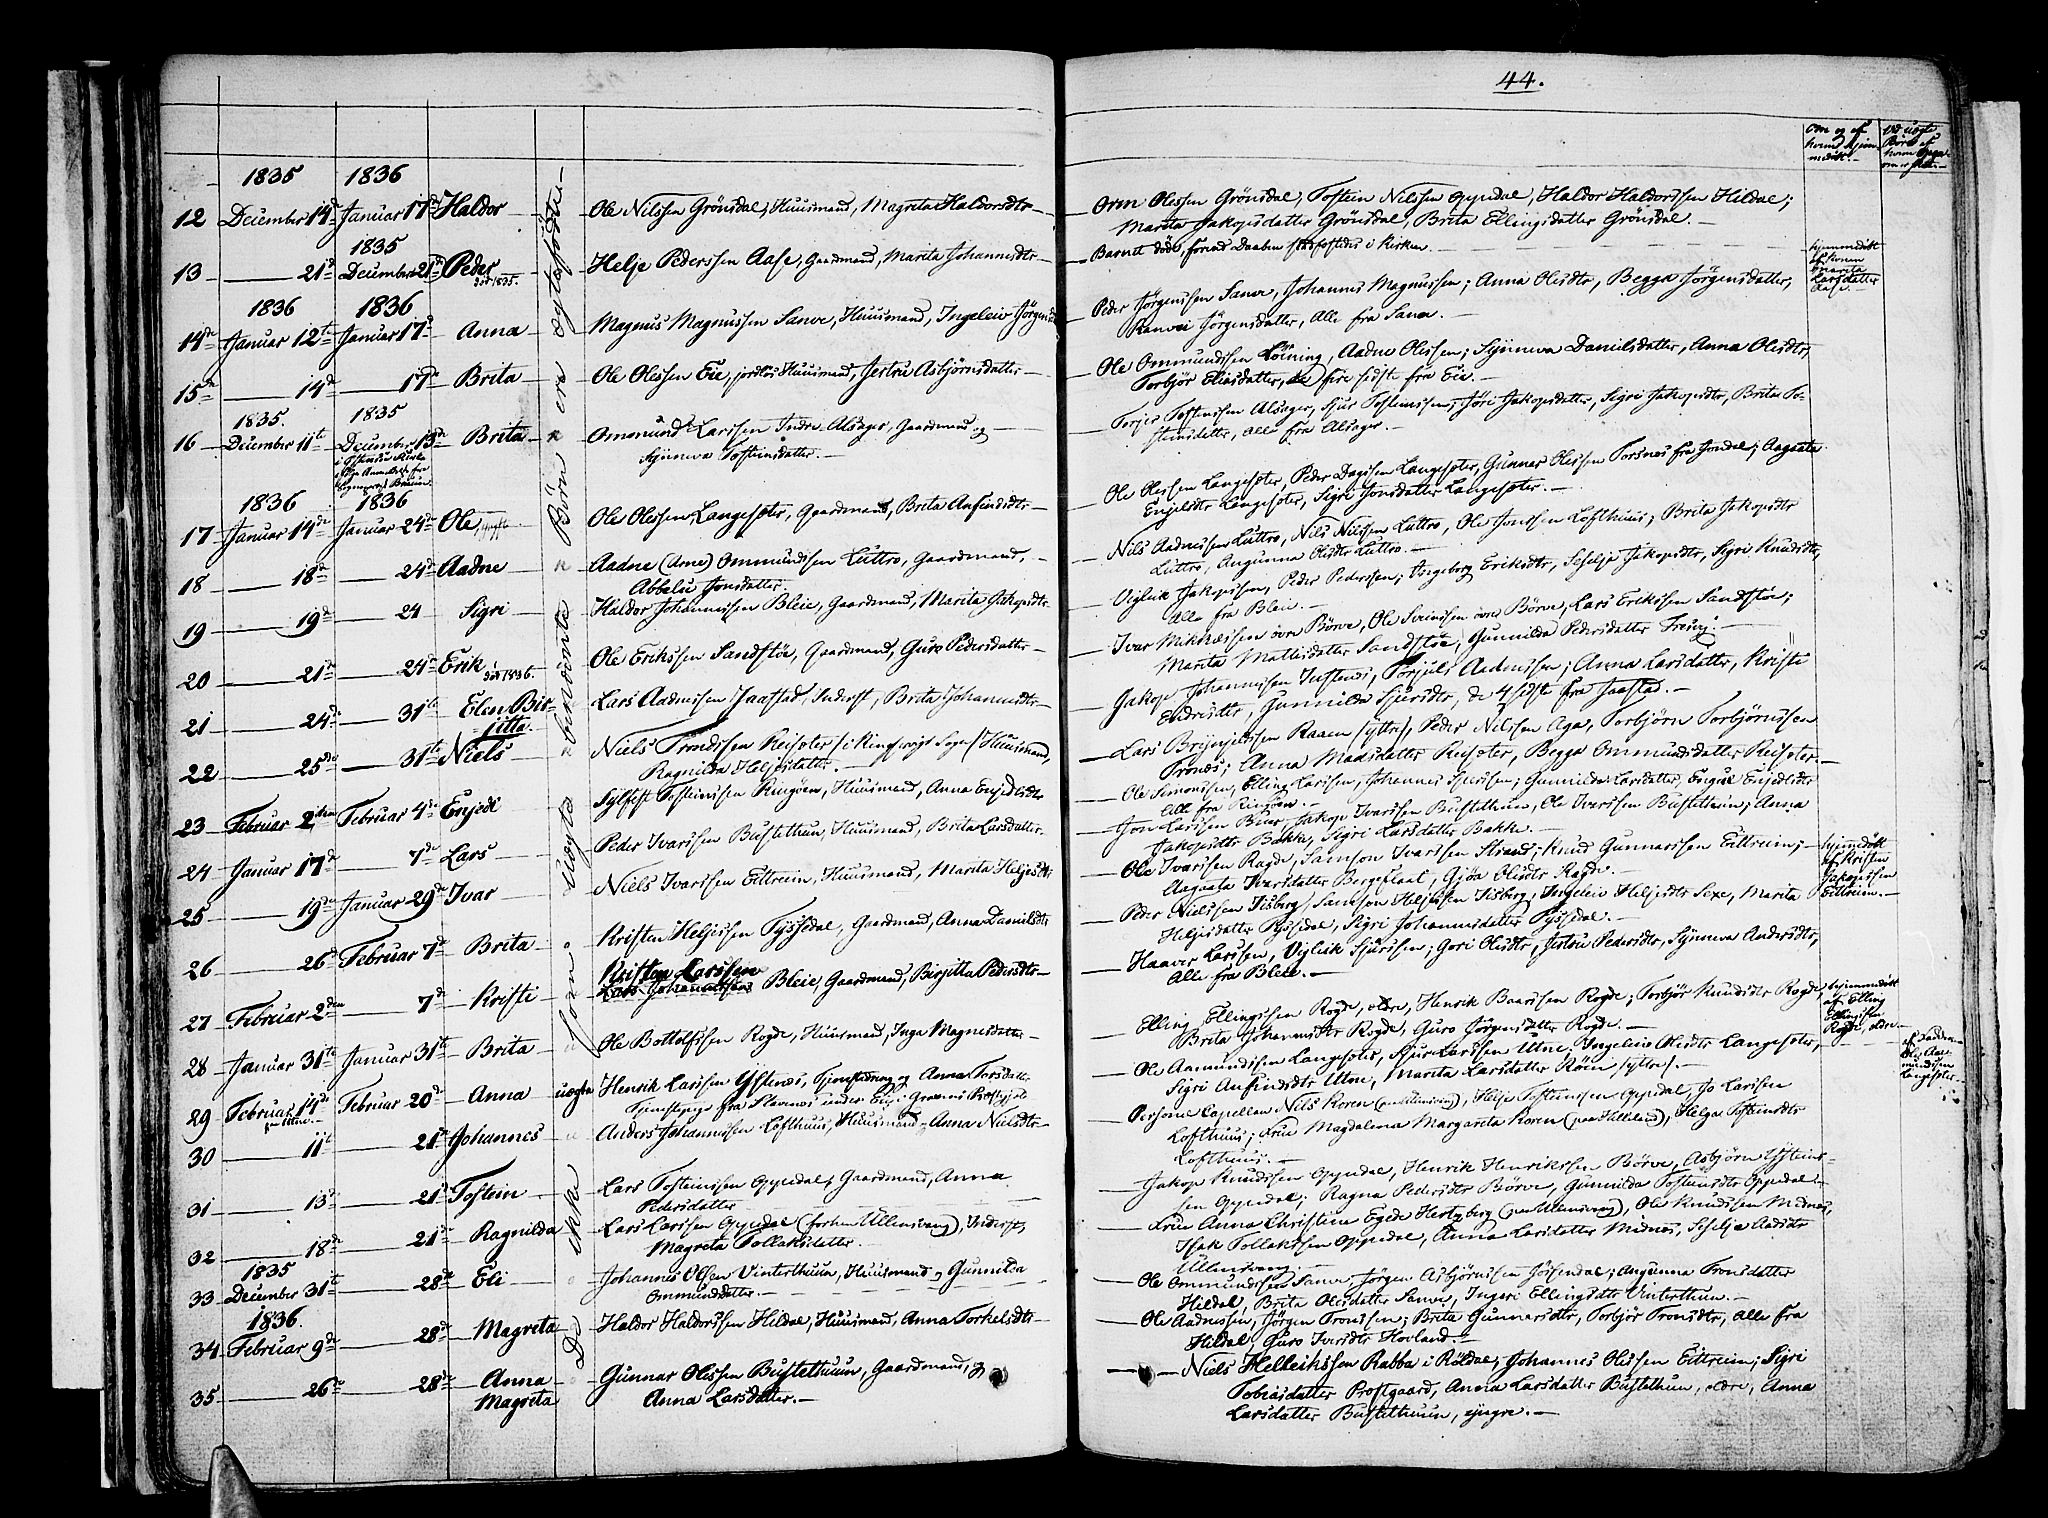 44.
om og af
hvem hjem-
medøbt.
ved uægte
Børn af
hvem
om
1835 1836
12 December 14de Januar 17de Haldor Ole Nilssen Grönsdal, Huusmand, Magreta Haldorsdtr
Orm Olessen Grönsdal, Tostein Nilssen Oppedal, Haldor Haldorssen Hildal;
Marita Jakopsdatter Grönsdal, Brita Ellingsdatter Grönsdal.
1835
13 21de December 21de Peder Helje Pederssen Aase, Gaardmand, Marita Johannisdtr
död 1835.
Barnet döde, forend Daaben stadfæstedes i Kirken.
hjemmedöbt
af Konen
Marita
Larsdatter
Aase.
1836 1836
14de Januar 12te Januar 17de Anna Magnus Magnussen Sanve, Huusmand, Ingeleiv Jörgensd
Peder Jörgenssen Sanve, Johannes Magnussen; Anna Olisdtr, Begga Jörgensdatter,
Ranvei Jörgensdatter, Alle fra Sanve.
15de 14de 17de Brita Ole Olessen Eie, jordlös Huusmand, Jertru Asbjörnsdatter
Ole Ommundssen Löining, Aadne Olessen; Synneva Danielsdatter, Anna Olisdtr,
Torbjör Eliasdatter, de fire sidste fra Eie.
1835. 1835
16 December 11te December 13de Brita Ommund Larssen Indre Alsager, Gaardmand og
Synneva Tosteinsdatter.
Torjer Tosteinssen Alsager, Sjur Tosteinssen; Jöri Jakopsdatter, Sigri Jakopsdtr, Brita To-
steinsdatter, alle fra Alsager.
1836 1836
17 Januar 14de Januar 24de Ole Ole Olessen Langesæter, Gaardmand, Brita Anfinsdtr
Ole Olessen Langesæter, Peder Dagssen Langesæter, Gunnar Olessen Torsnes fra Jondal; Aagaata
Engelsdtr Langesæter, Sigri Jonsdatter Langesæter.
18 18de 24de Aadne Aadne (Arne) Ommundssen Luttro, Gaardmand,
Abbelu Jonsdatter
Nils Aadnessen Luttro, Nils Nilssen Luttro, Ole Jonssen Lofthuus; Brita Jakopsdtr
Luttro, Angunna Olisdtr Luttro.
19 19de 24 Sigri Haldor Johannessen Bleie, Gaardmand, Marita Jakopsdtr
Vigleik Jakopssen, Peder Pederssen; Ingeborg Eriksdtr, Seselje Jakopsdtr, Sigri Knudsdtr,
Alle fra Bleie.
20 21de 24de Erik Ole Erikssen Sandstöe, Gaardmand, Guro Pedersdatter
död 1836.
Ivar Mikkelssen övre Börve, Ole Svenssen övre Börve, Lars Erikssen Sandstöe;
Marita Mattisdatter Sandstöe, Gunnilda Pedersdatter
21 24de 31te Elen Bir-
jitta. Lars Aadnessen Jaastad, Inderst, Brita Johannisdtr
Jakop Johannessen, Torjuls Aadnessen; Anna Larsdatter, Kristi
Endresdtr, Gunnilda Sjursdtr, de 4 sidste fra Jaastad.
22 25de 31te Niels Niels Trondssen Reisæter (i Kingservigs Sogn) Huusmand,
Ragnilda Heljesdatter.
Lars Brynjulssen Raaen (yttre), Peder Nilssen Aga, Torbjörn Torbjörnssen
Tronæs; Anna Madsdatter Reisæter, Begga Ommundsdatter Reisæter.
23 Februar 2den Februar 4de Enjel Sylfest Tosteinssen Ringöen, Huusmand, Anna Enjelsdtr
Ole Simonssen, Elling Larssen, Johannes Sjurssen; Gunnilda Larsdatter, Enjel Enjelsdtr
Alle fra Ringöen.
24 Januar 17de 7de Lars Peder Ivarssen Bustethuun, Huusmand, Brita Larsdatter.
Jon Larssen Buar, Jakop Ivarssen Bustethuun, Ole Ivarssen Bustethuun; Anna
Jakopsdtr Bakke, Sigri Larsdatter Bakke.
25 19de Januar 29de Ivar Niels Ivarssen Eittreim, Huusmand, Marita Heljesdtr
Ole Ivarssen Ragde, Samson Ivarssen Strand, Knud Gunnarssen Eittreim;
Aagaata Ivarsdatter Bergeflaat, Gjöa Olisdtr Ragde.
hjemmedöbt
af Kristen
Jakopssen
Eittreim.
26 26de Februar 7de Brita Kristen Heljessen Tyssedal, Gaardmand, Anna Danielsdtr
Peder Nielssen Tisberg, Samson Heljessen Isberg; Ingeleiv Heljesdtr Sexe, Marita
Heljesdatter Tyssedal, Sigri Johannisdatter Tyssedal.
27 Februar 2den 7de Kristi Kristen Larssen
Lars Johannessen Bleie, Gaardmand, Birjitta Pedersdtr
Haaver Larssen, Vigleik Sjurssen; Gori Olisdtr, Jertru Pedersdtr, Synneva Andersdtr,
Alle fra Bleie.
28 Januar 31te Januar 31te Brita Ole Bottolfssen Rogde, Huusmand, Inga Magnesdatter
Elling Ellingssen Rogde, eldre, Henrik Baarssen Rogde; Torbjör Knudsdtr Rogde,
Brita Johannisdtr Rogde, Guro Jörgensdatter Rogde.
hjemmedöbt
af Elling
Ellingssen
Rogde, eldre
29 Februar 14de Februar 20de Anna uægte Henrik Larssen Ystenæs, Tjenestedreng og Anna Torsdatter
Tjenestepige fra Slævenes under Eig i Gravens Prestegjeld
Ole Aamundssen Langesæter, Sjur Larssen Utne; Ingeleiv Olisdtr Langesæter,
Sigri Anfinsdtr Utne, Marita Larsdatter Röin (yttre).
af Faderen
Ole Aa-
mundssen
Langesæter.
30 11te 21de Johannes Anders Johannessen Lofthuus, Huusmand, Anna Nielsdtr
Personel Capellan Nils Koren (paa Ullensvang), Helje Tosteinssen Oppedal, Jo Larssen
Lofthuus; Frue Magdalena Margareta Koren (paa Helleland), Helga Tosteinsdtr
Lofthuus.
31 13de 21de Tostein Lars Tosteinssen Oppedal, Gaardmand, Anna
Pedersdatter
Jakop Knudssen Oppedal, Henrik Henrikssen Börve, Asbjörn Ysteins-
sen Oppedal; Ragna Pedersdtr Börve, Gunnilda Tosteinsdtr Oppedal
32 18de 21de Ragnilda Lars Larssen Oppedal (forhen Ullensvang), Inderst,
Magreta Tollaksdatter
Frue Anna Christine Egede Hertzberg (paa Ullensvang), Ole Knudssen Midnæs,
Isak Tollakssen Oppedal, Anna Larsdatter Midnæs, Seselja Aadsdtr
Ullensvang.
1835
33 December 31te 28de Eli Johannes Olsen Vinterthuun, Huusmand, Gunnilda
Ommundsdatter.
Ole Ommundssen Sanve, Jörgen Asbjörnssen Jösendal; Angunna Tronsdatter
Hildal, Brita Olisdatter Sanve, Ingeri Ellingsdtr Vinterthuun.
1836.
34 Februar 9de 28de Magreta Haldor Haldorssen Hildal, Huusmand, Anna Torkelsdtr
Ole Aadnessen, Jörgen Tronssen; Brita Gunnarsdtr, Torbjör Tronsdtr, alle fra
Hildal, Guro Ivarsdtr Hovland.
35 26de 28de Anna
Magreta Gunnar Olessen Bustethuun, Gaardmand, og
Anna Larsdatter.
Niels Helleikssen Rabba i Röldal, Johannes Olessen Eittreim; Sigri
Tobiasdatter Prostgaard, Anna Larsdatter Bustethuun, eldre, Anna
Larsdatter Bustethuun, yngre.
De ikke som uægte benævnte Börn ere ægtefödte